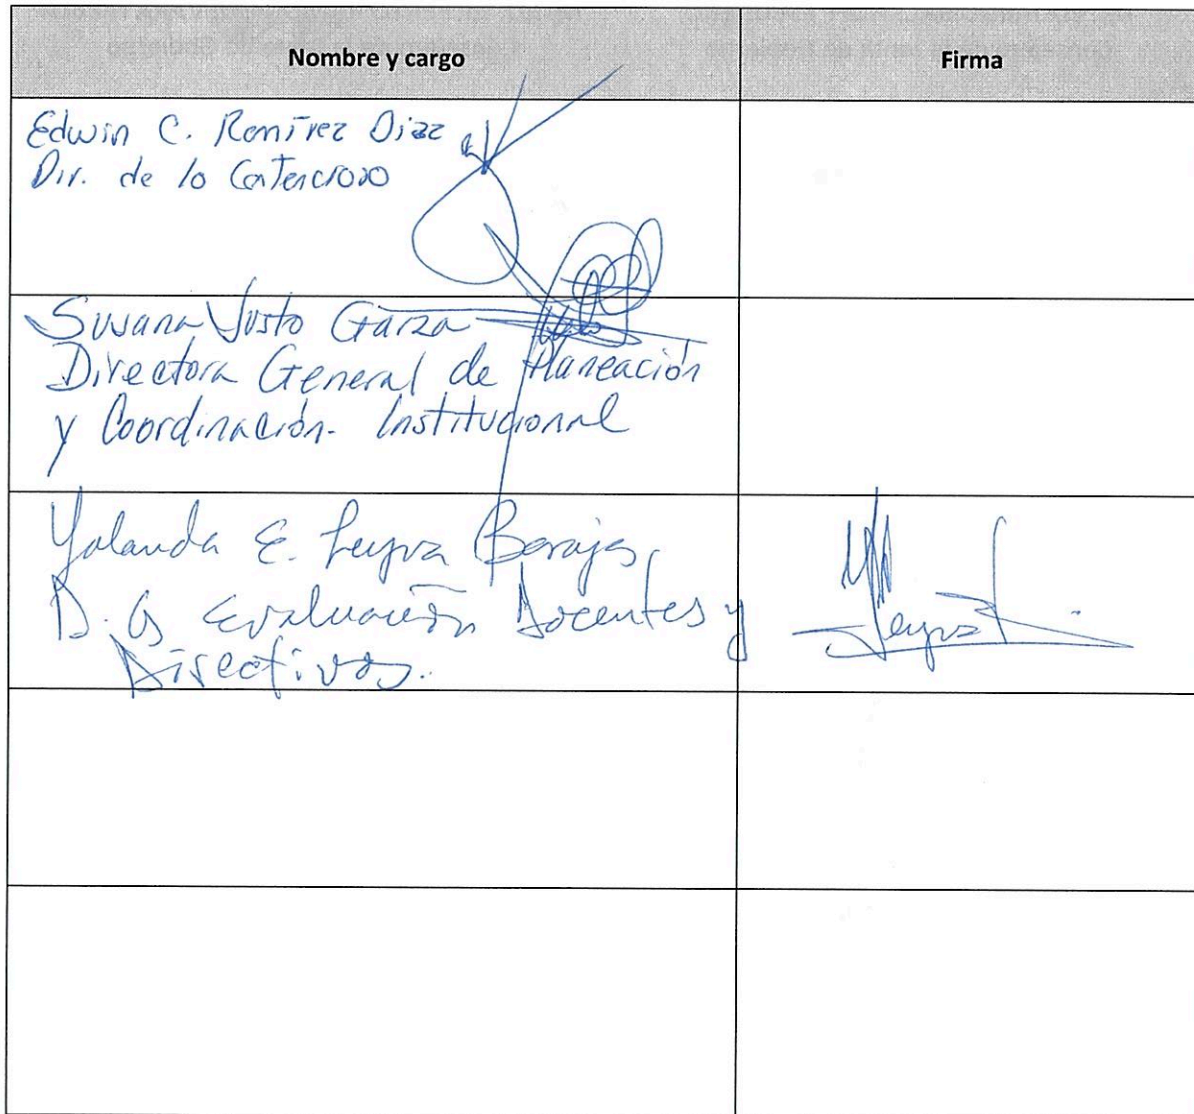 Nombre y cargo
Firma
Edwin C. Ramírez Diaz
Dir. de lo Contencioso
Susana Justo Garza
Directora General de Planeación
y Coordinación. Institucional
Yolanda E. Leyva Barajas
D. G Evaluación Docentes y
Directivos.
Leyva